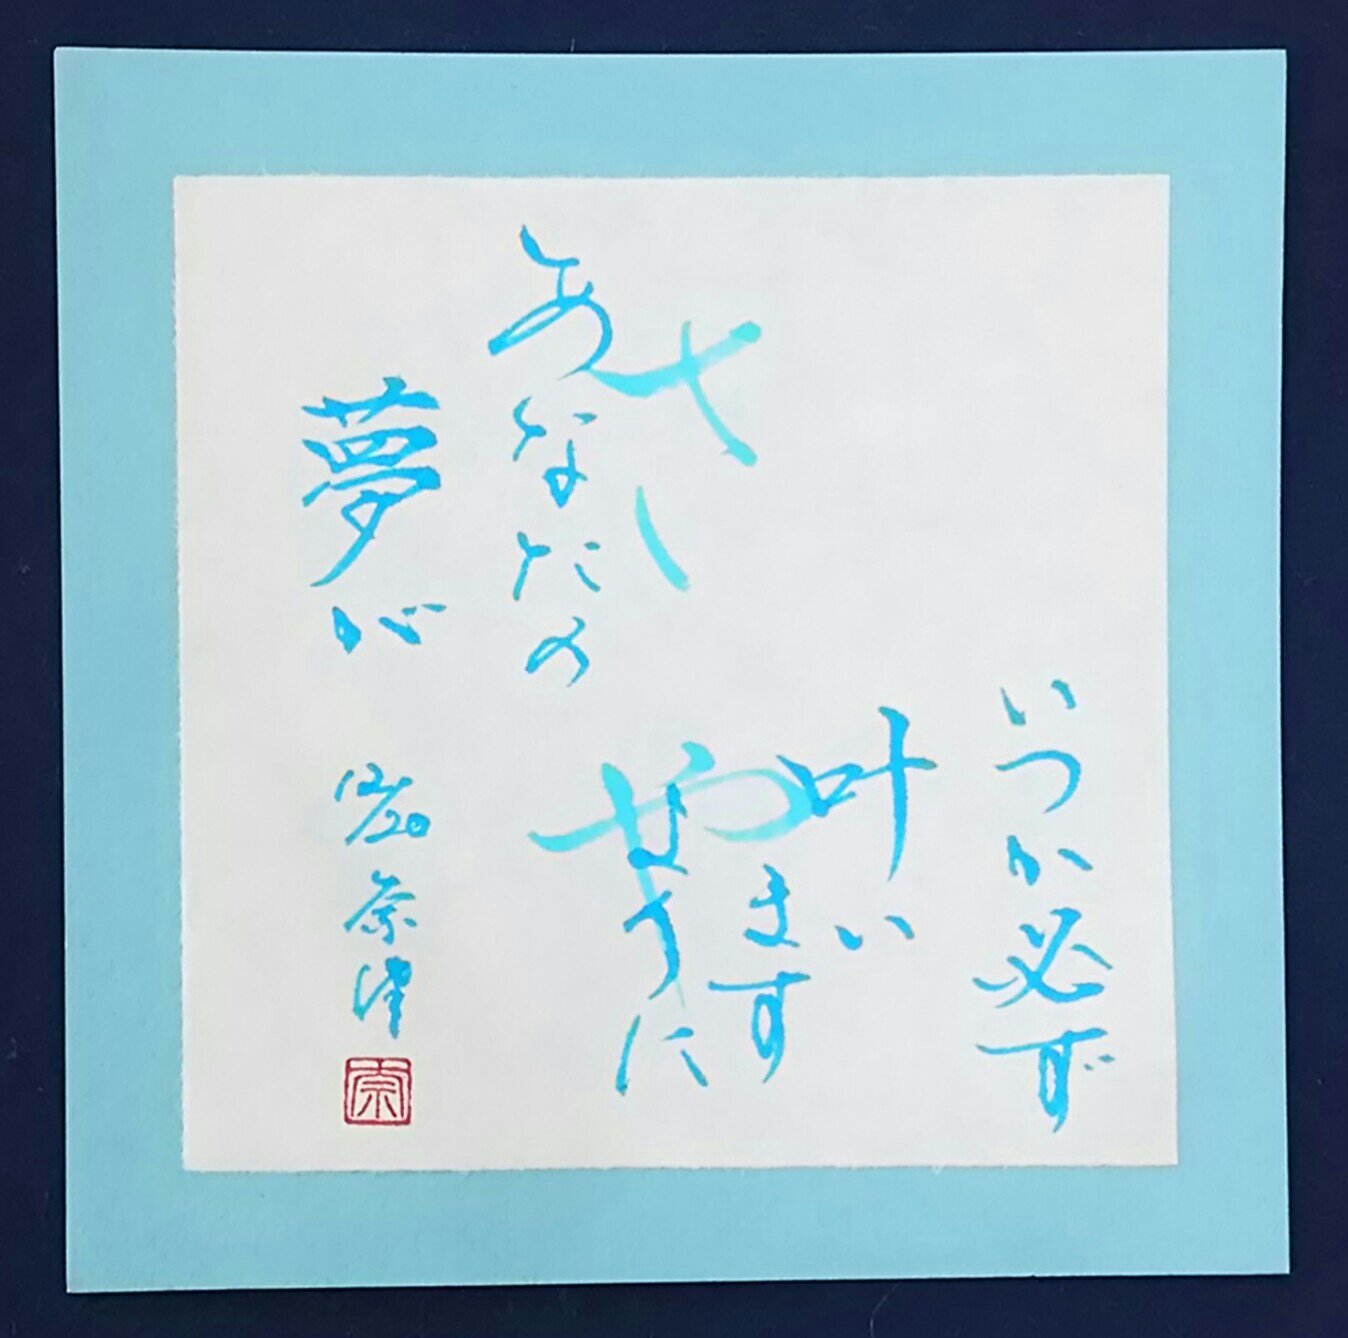 あなたの
夢が
いつか必ず
叶い
ます
ように
12/20
奈津
奈